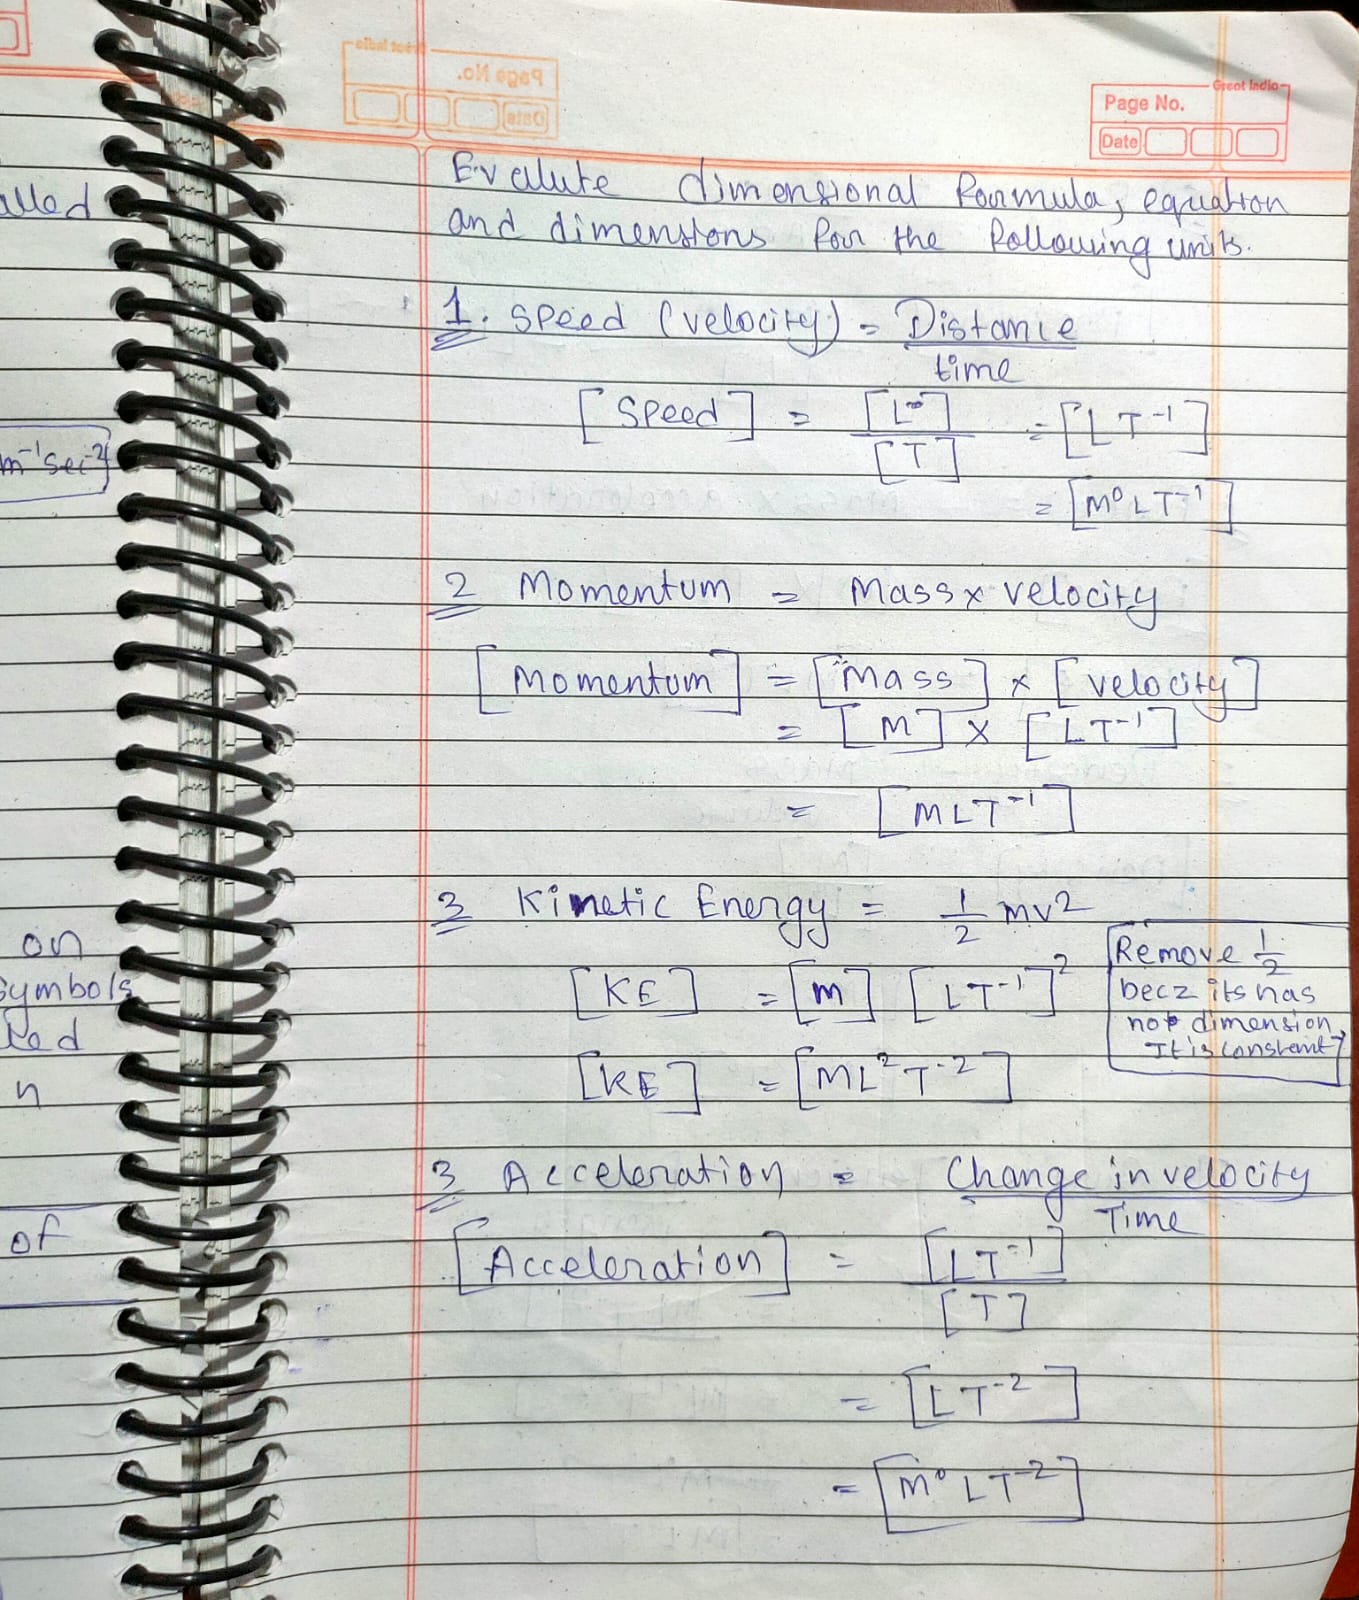 alled
m⁻¹sec⁻²
on
symbols
ted
n
of
Great India
Page No.
Date
Evalute dimensional formula, equation
and dimensions for the following units.
1. Speed (velocity) = Distance
time
[Speed] = [L] / [T] = [LT⁻¹]
= [M⁰LT⁻¹]
2 Momentum = Mass x velocity
[Momentum] = [Mass] x [velocity]
= [M] x [LT⁻¹]
= [MLT⁻¹]
3 Kinetic Energy = 1/2 mv²
[KE] = [m] [LT⁻¹]²
Remove 1/2
becz its has
not dimension,
It is constant
[KE] = [ML²T⁻²]
3 Acceleration = Change in velocity
Time
[Acceleration] = [LT⁻¹] / [T]
= [LT⁻²]
= [M⁰LT⁻²]